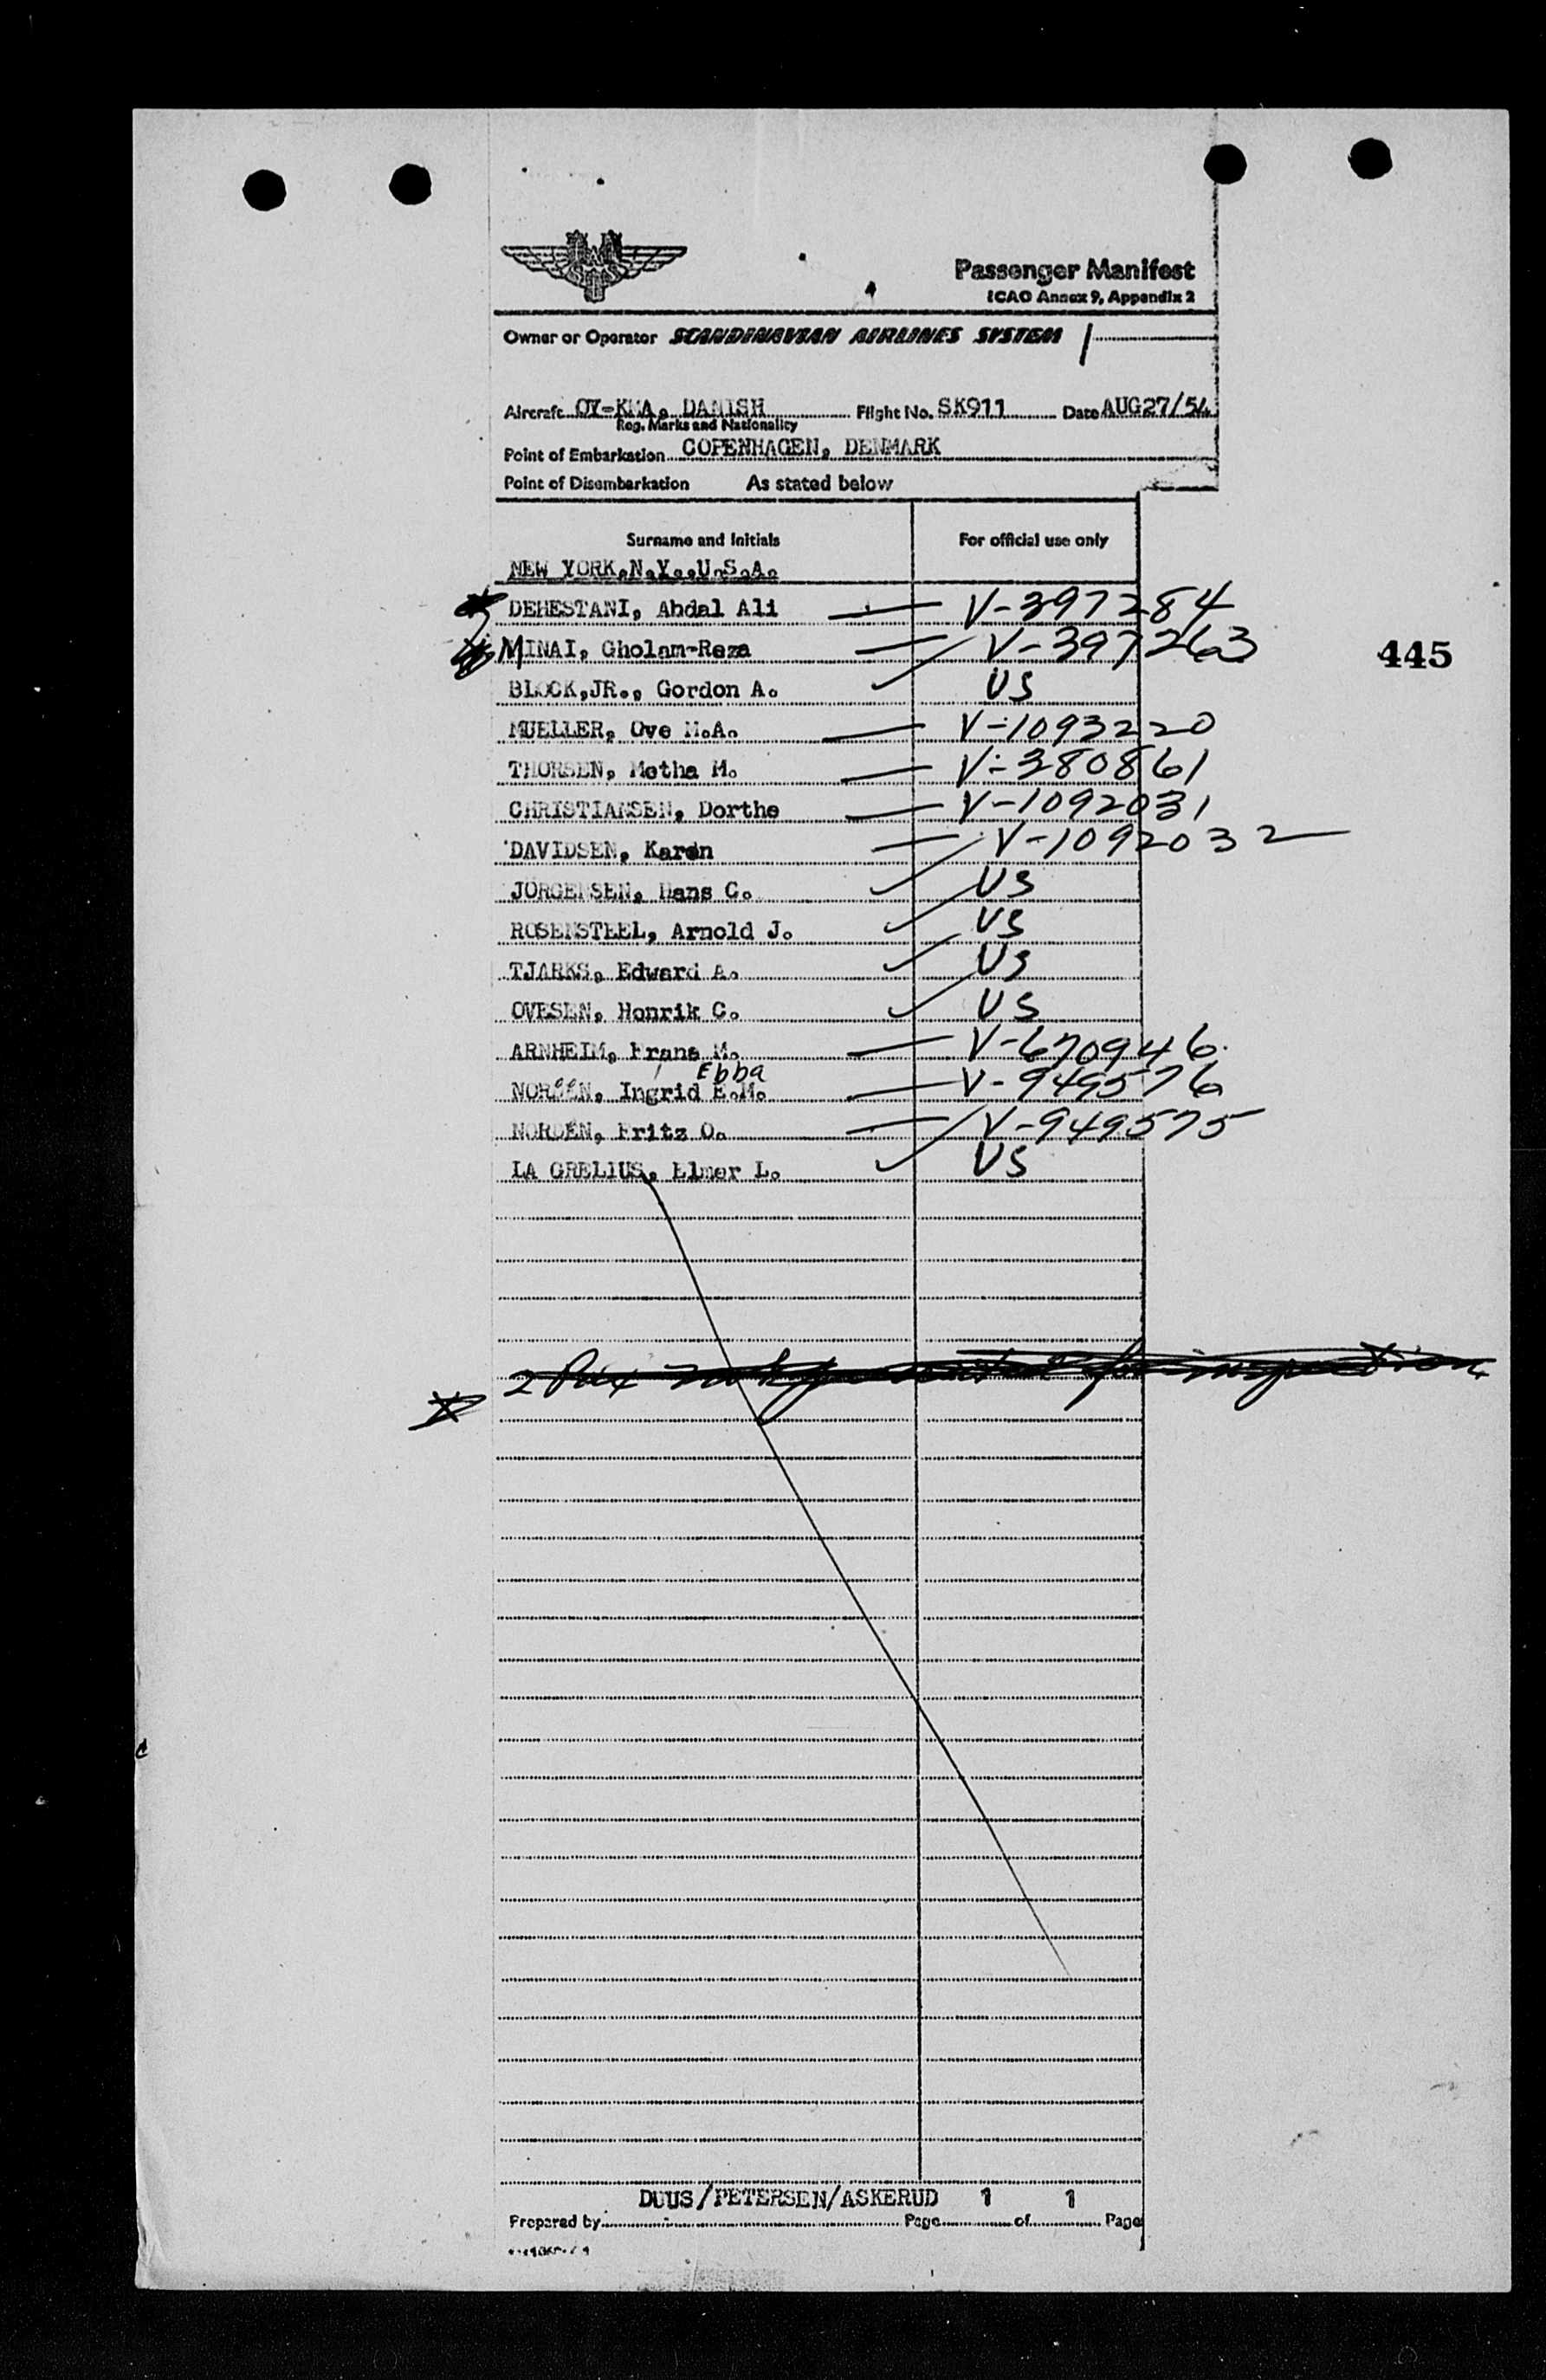 Passenger Manifest
ICAO Annex 9, Appendix 2
Owner or Operator SCANDINAVIAN AIRLINES SYSTEM
Aircraft OY-KMA, DANISH Flight No. SK911 Date AUG27/54
Reg. Marks and Nationality
Point of Embarkation COPENHAGEN, DENMARK
Point of Disembarkation As stated below
Surname and Initials For official use only
NEW YORK,N.Y.,U.S.A.
DEHESTANI, Abdal Ali V-397284
MINAI, Gholam-Reza V-397263
445
BLOCK,JR., Gordon A. US
MUELLER, Ove M.A. V-1093220
THORSEN, Metha M. V-380861
CHRISTIANSEN, Dorthe V-1092031
DAVIDSEN, Karen V-1092032
JORGENSEN, Hans C. US
ROSENSTEEL, Arnold J. US
TJARKS, Edward A. US
OVESEN, Henrik C. US
ARNHEIM, Frans M. V-670946
Ebba
NORDEN, Ingrid E.M. V-949576
NORDEN, Fritz O. V-949575
LA GRELIUS, Elmer L. US
2 Pax not presented for inspection
DUUS/PETERSEN/ASKERUD 1 1
Prepared by Page of Page